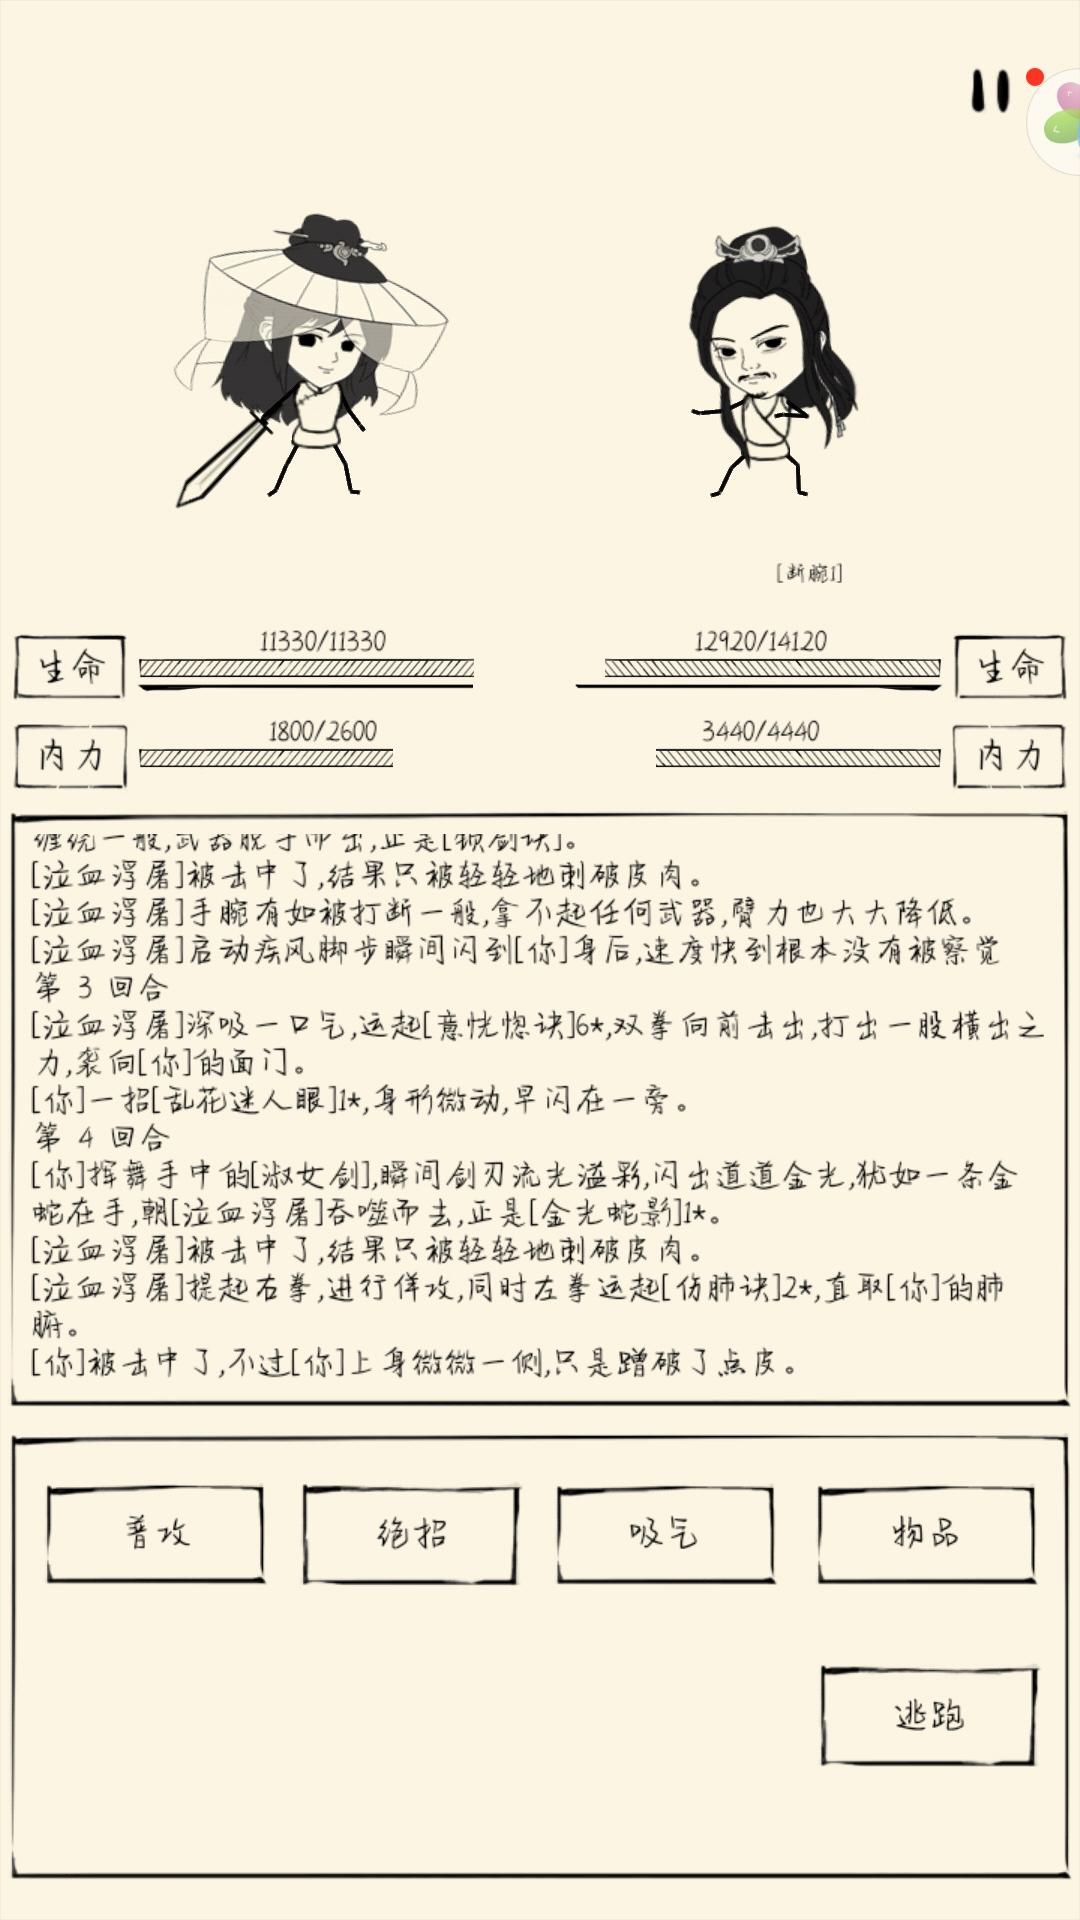 [断腕1]
11330/11330
12920/14120
生命
生命
1800/2600
3440/4440
内力
内力
缠绕一般,武器脱手而出,正是[锁剑诀]。
[泣血浮屠]被击中了,结果只被轻轻地刺破皮肉。
[泣血浮屠]手腕有如被打断一般,拿不起任何武器,臂力也大大降低。
[泣血浮屠]启动疾风脚步瞬间闪到[你]身后,速度快到根本没有被察觉
第 3 回合
[泣血浮屠]深吸一口气,运起[意恍惚诀]6*,双拳向前击出,打出一股横出之
力,袭向[你]的面门。
[你]一招[乱花迷人眼]1*,身形微动,早闪在一旁。
第 4 回合
[你]挥舞手中的[淑女剑],瞬间剑刃流光溢彩,闪出道道金光,犹如一条金
蛇在手,朝[泣血浮屠]吞噬而去,正是[金光蛇影]1*。
[泣血浮屠]被击中了,结果只被轻轻地刺破皮肉。
[泣血浮屠]提起右拳,进行佯攻,同时左拳运起[伤肺诀]2*,直取[你]的肺
腑。
[你]被击中了,不过[你]上身微微一侧,只是蹭破了点皮。
普攻
绝招
吸气
物品
逃跑